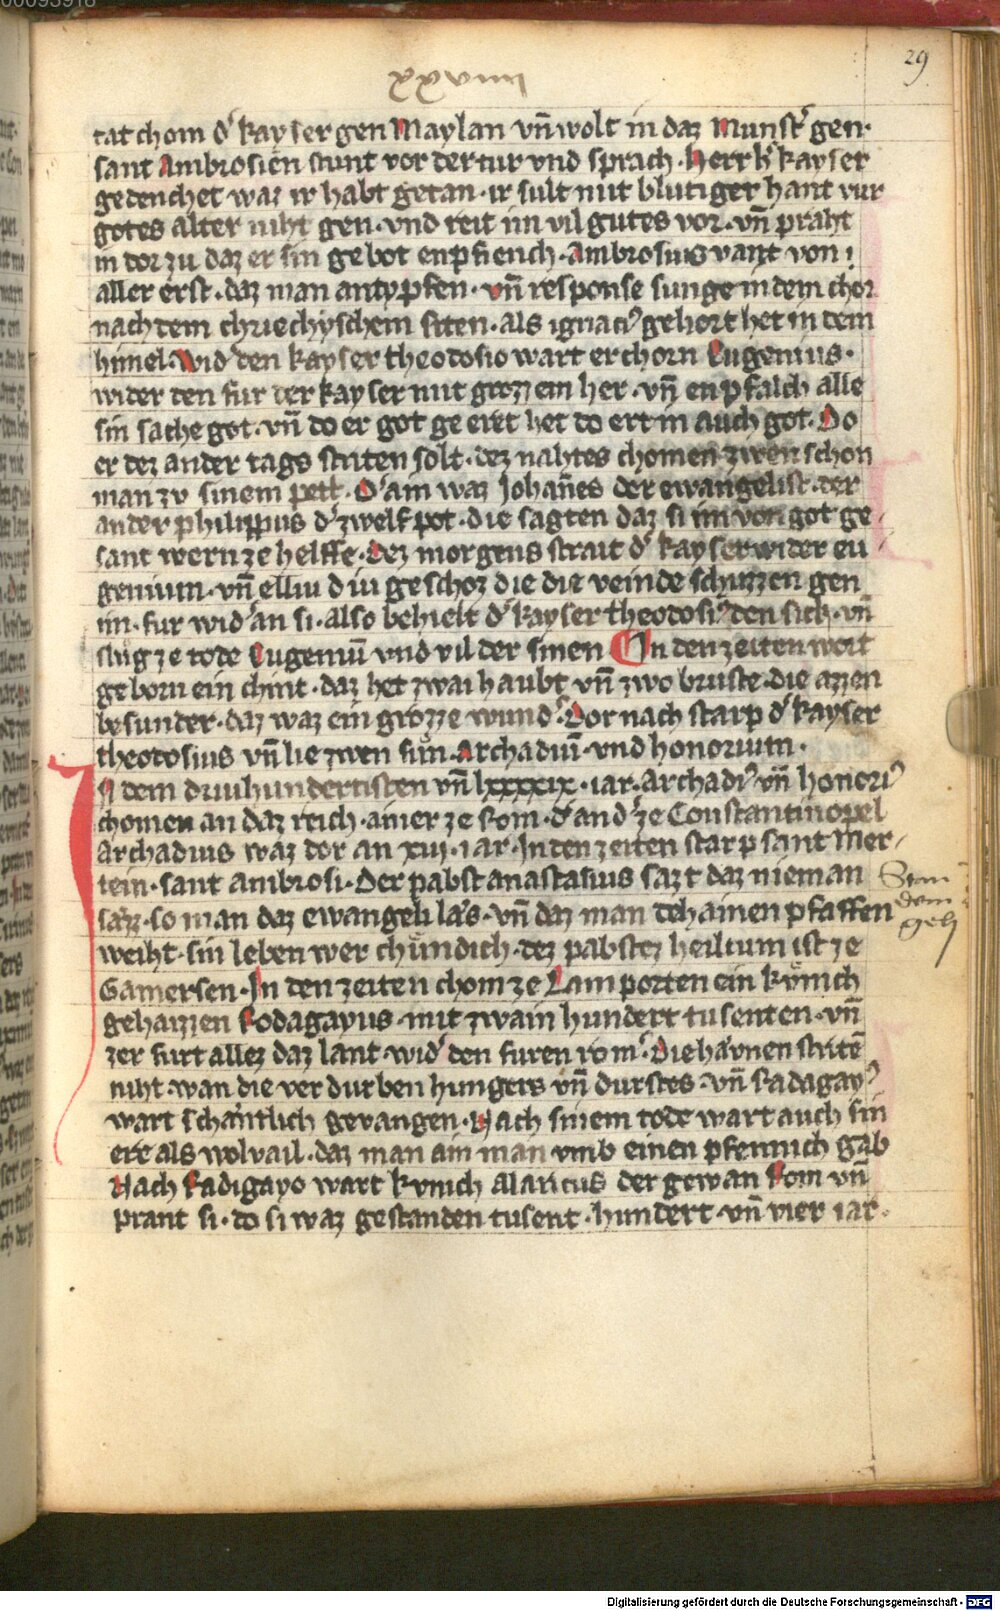 00093918
29
xxviiii
tat chom d' kayser gen Maylan vn̄ wolt in daz Munst' gen·
sant Ambrosien stunt vor der tur vnd sprach· Herr h' kayser
gedenchet waz ir habt getan· ir sult mit blutiger hant vur
gotes alter niht gen· vnd reit im vil gutes vor· vn̄ praht
in dor zu daz er sin gebot enpfiench· Ambrosius vant von
aller erst· daz man antypfen· vn̄ response sunge in dem chor
nach dem chriechyschem siten· als ignaci' gehort het in dem
himel· Wid' den kayser theodosio wart erchorn Eugenius·
wider den fur der kayser mit grozzem her· vn̄ enpfalch alle
sin sache got· vn̄ do er got ge eret het do ert in auch got· Do
er dez ander tags striten solt· dez nahtes chomen zwen schon
man zv sinem pett· D' ain waz Johan̄es der ewangelist· der
ander philippus d' zwelfpot· die sagten daz si im von got ge
sant wern ze helffe· Dez morgens strait d' kayser wider eu
genium· vn̄ elliu diu geschoz die die veinde schuzzen gen
im· fur wid' an si· also behielt d' kayser theodosi' den sick· vn̄
slug ze tode Eugeniū vnd vil der sinen In den zeiten wort
geborn ein chint· daz het zwai haubt vn̄ zwo bruste· die azzen
besunder· daz waz ein grozze wund'· Dor nach starp d' kayser
theodosius vn̄ lie zwen sün· Archadiū· vnd honorium·
In dem driuhundertisten vn̄ lxxxxix· iar· Archadi' vn̄ honori'
chomen an daz reich· ainer ze Rom· d' and' ze Constantinopel
Archadius waz dor an xiij· iar· In den zeiten starp sant Mer
tein· sant ambrosi· Der pabst anastasius sazt daz nieman
sazz· so man daz ewangeli las· vn̄ daz man dehainen pfaffen
weiht· sin leben wer chündich· dez pabstez heiltum ist ze
Gamersen· In den zeiten chom ze Lamporten ein künich
gehaizzen Rodagayus· mit zwain hundert tusenten· vn̄
zer furt allez daz lant· wid' den furen rom'· Die havnen stritē
niht· wan die ver durben hungers vn̄ durstes· vn̄ Radagay'
wart schantlich gevangen· Nach sinem tode wart auch sin
ere als wolvail· daz man ain man vmb einen pfennich gab
Nach Radigayo wart künich Alaricus der gewan Rom vn̄
prant si· do si waz gestanden tusent· hundert· vn̄ vier iar·
Digitalisierung gefördert durch die Deutsche Forschungsgemeinschaft - DFG